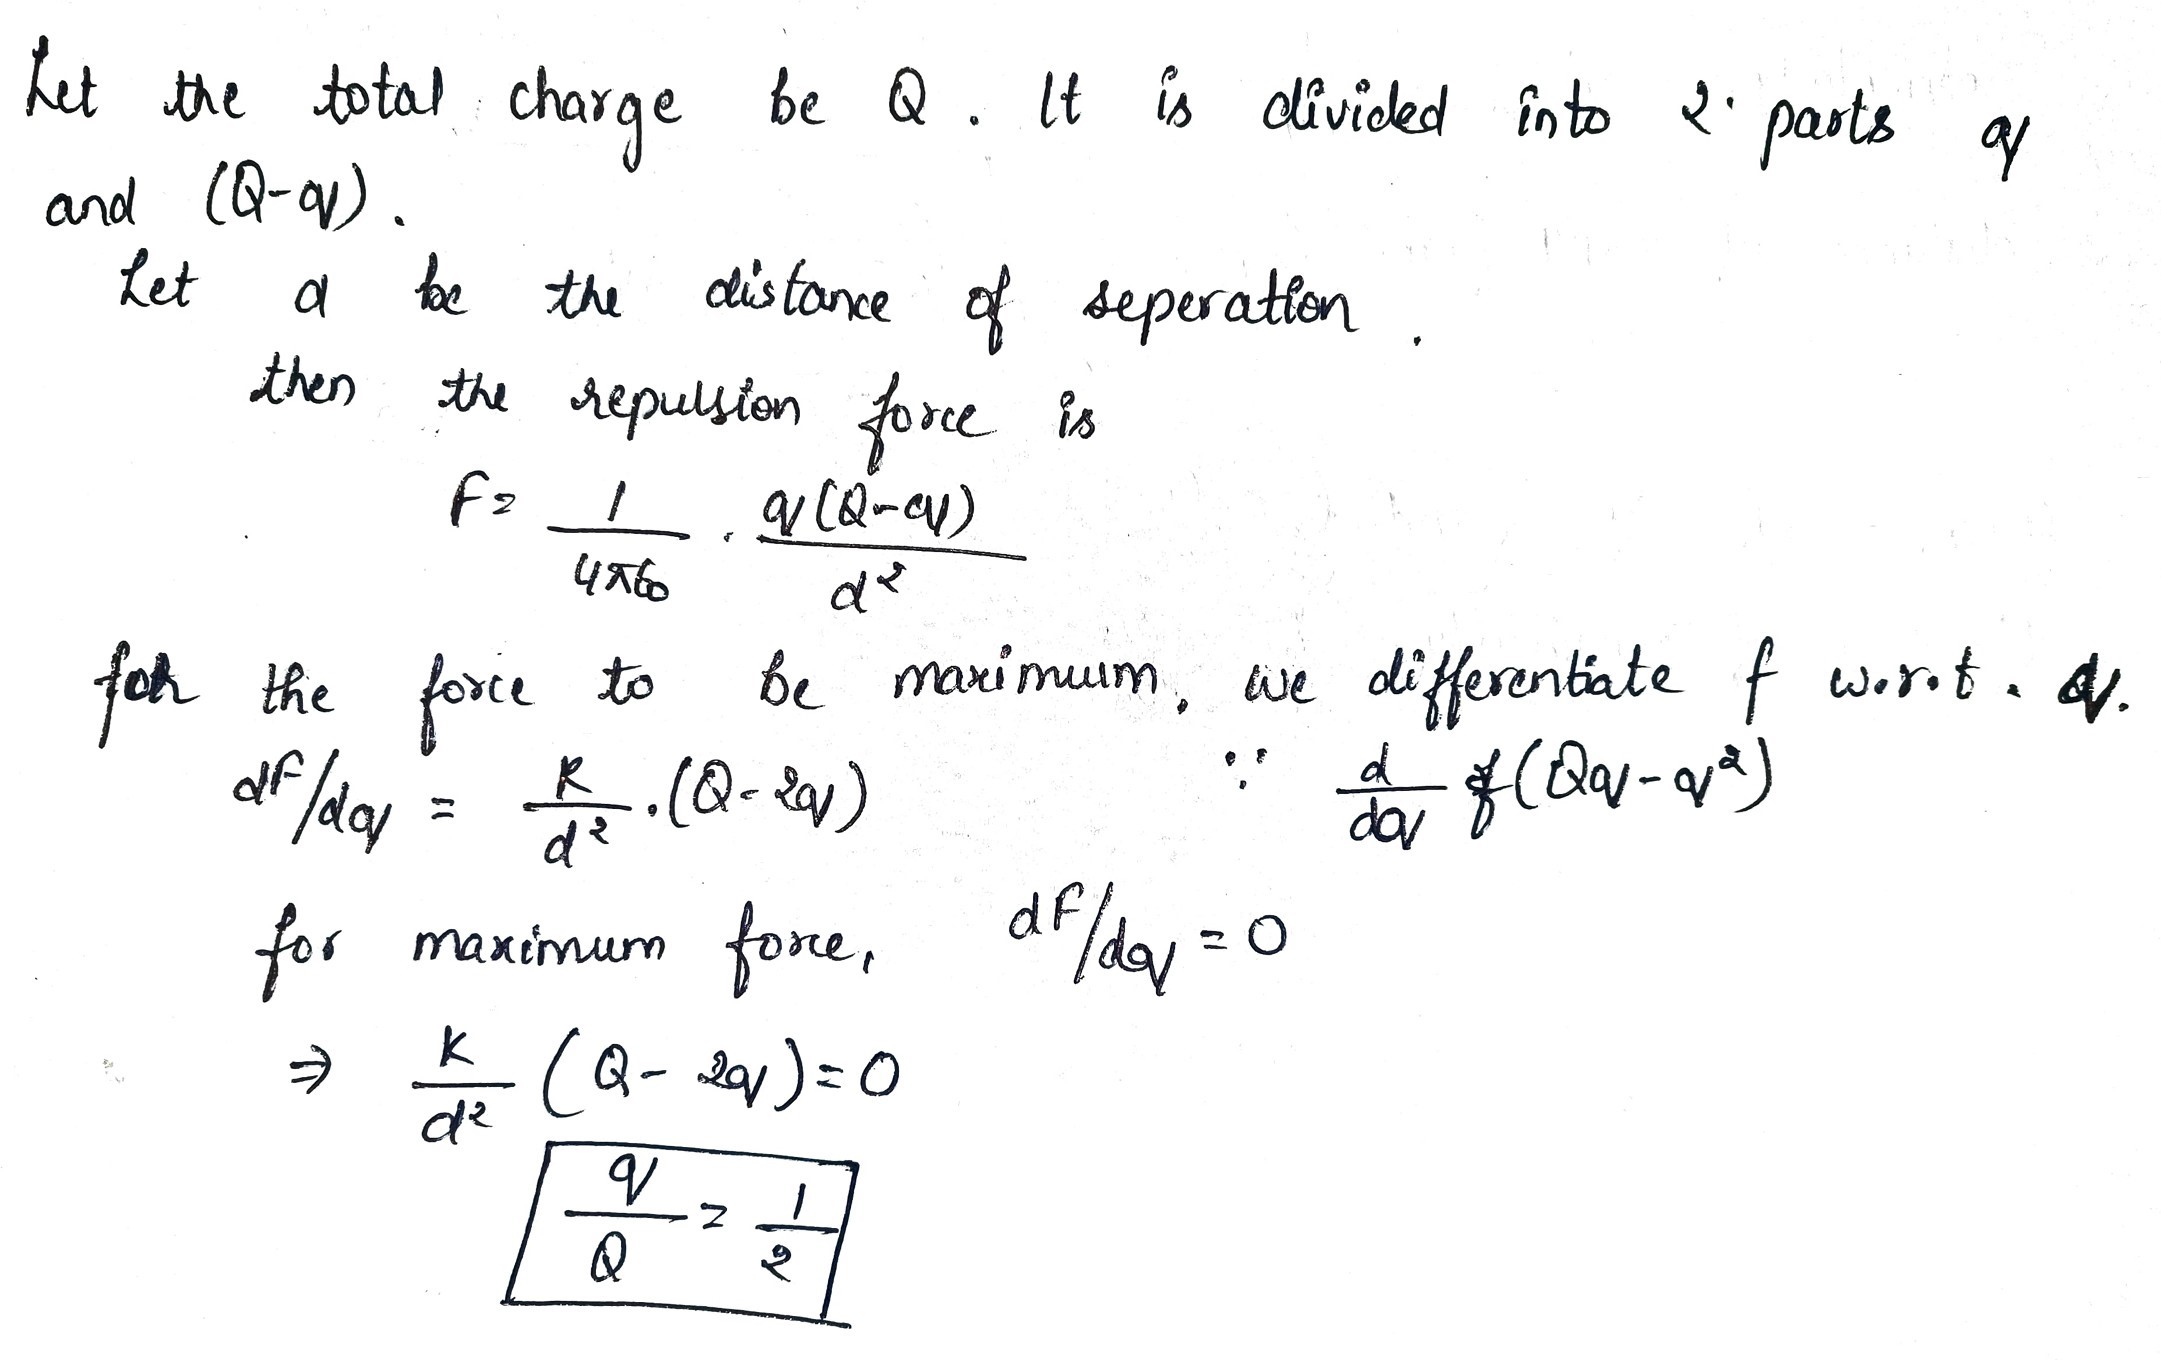 Let the total charge be Q. It is divided into 2 parts q
and (Q-q).
Let d be the distance of seperation.
then the repulsion force is
F = 1/4πε₀ . q(Q-q)/d²
for the force to be maximum, we differentiate f w.r.t. q.
dF/dq = K/d² . (Q-2q) ∵ d/dq (Qq-q²)
for maximum force, dF/dq = 0
⇒ K/d² (Q-2q) = 0
q/Q = 1/2